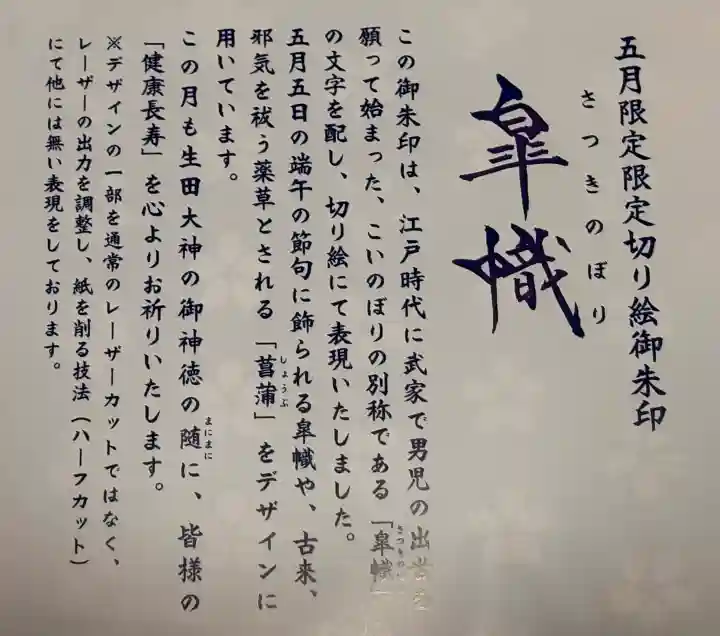 五月限定限定切り絵御朱印
さつきのぼり
皐幟
この御朱印は、江戸時代に武家で男児の出世を
願って始まった、こいのぼりの別称である「皐幟」
の文字を配し、切り絵にて表現いたしました。
五月五日の端午の節句に飾られる皐幟や、古来、
邪気を祓う薬草とされる「菖蒲」をデザインに
しょうぶ
用いています。
この月も生田大神の御神徳の随に、皆様の
まにまに
「健康長寿」を心よりお祈りいたします。
※デザインの一部を通常のレーザーカットではなく、
レーザーの出力を調整し、紙を削る技法（ハーフカット）
にて他には無い表現をしております。